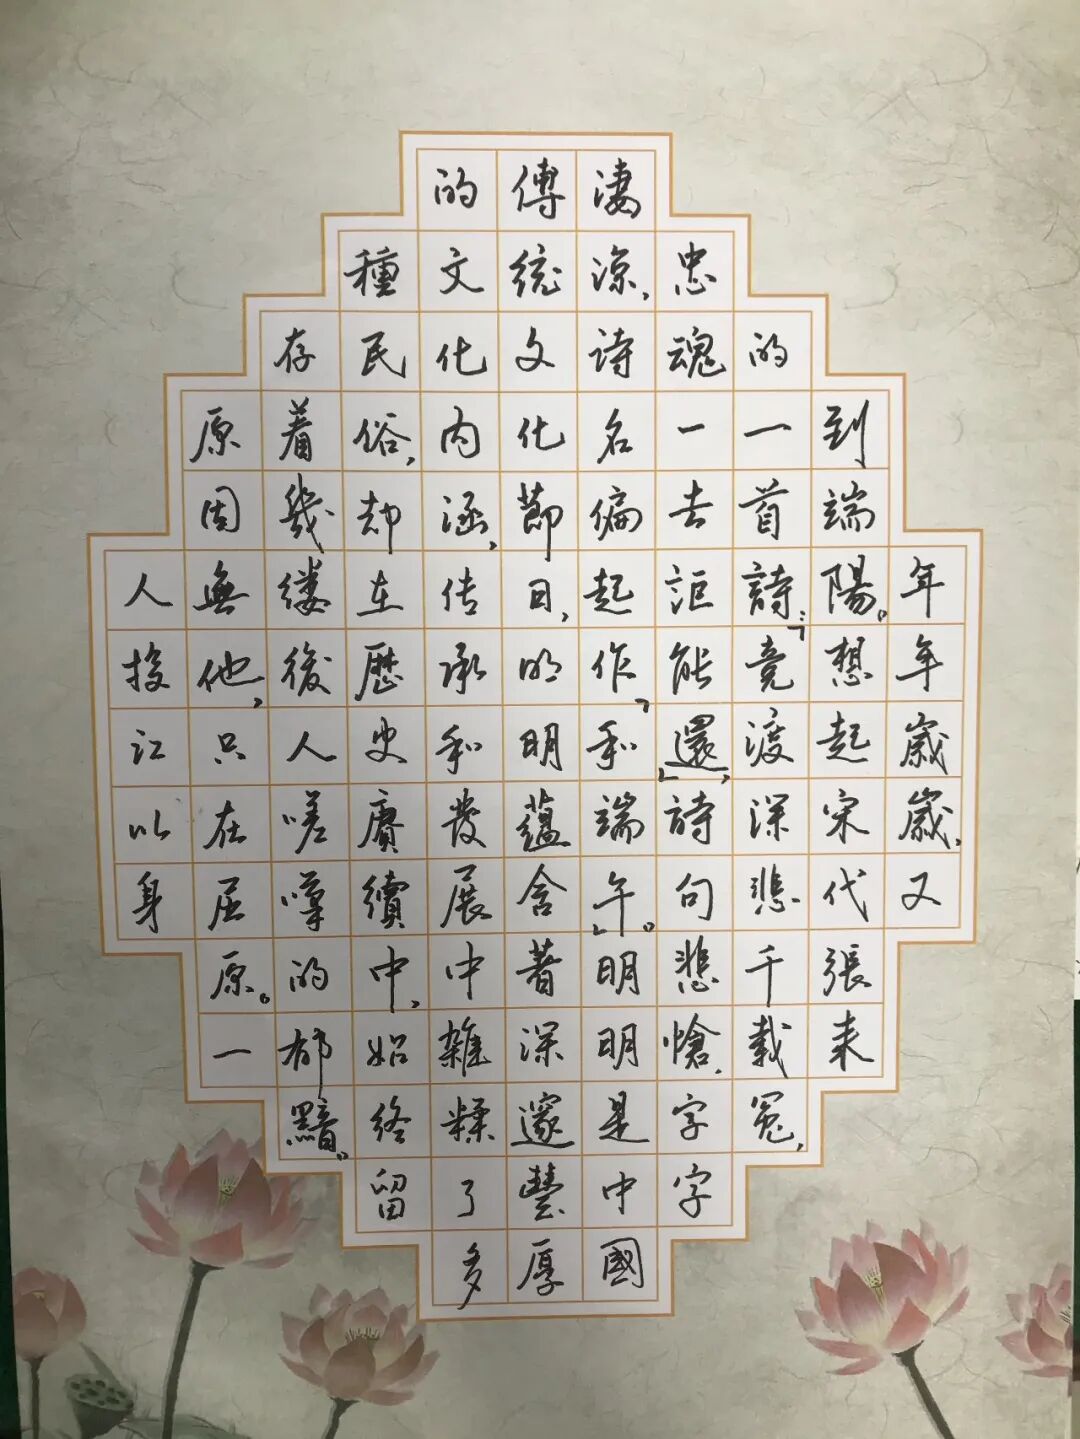 年年歲歲,又
到端陽。想起宋代張耒
的一首詩:「竟渡深悲千載冤,
忠魂一去詎能還」,詩句悲愴,字字
凄涼,诗名偏起作「和端午」。明明是中國
傳統文化節日,明明蘊含著深邃豐厚
的文化内涵,传承和發展中雜糅了多
種民俗,却在歷史賡續中,始終留
存着幾缕後人嗟嘆的郁黯。
原因無他,只在屈原。一
人投江以身